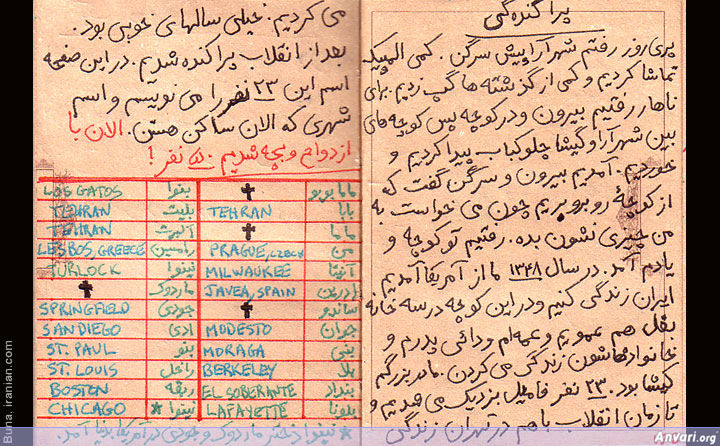 پراکنده‌گی
پری روز رفتم شهرآرا پیش سرگن. کمی المپیک
تماشا کردیم و کمی از گذشته ها گپ زدیم. برای
ناهار رفتیم بیرون و در کوچه پس کوچه های
بین شهرآرا و گیشا چلوکباب پیدا کردیم و
خوردیم. آمدیم بیرون و سرگن گفت که
از کوچهٔ روبرو بریم چون می خواست به
من چیزی نشون بده. رفتیم تو کوچه و
یادم آمد. در سال ۱۳۴۸ ما از آمریکا آمدیم
ایران زندگی کنیم و در این کوچه در سه خانه
بغل هم عمویم و عمه‌ام و دائی پدرم و
خانواده‌هاشون زندگی می کردن. مادربزرگم
گیشا بود. ۲۳ نفر فامیل نزدیک می شدیم و
تا زمان انقلاب با هم در تهران زندگی
می کردیم. خیلی سالهای خوبی بود.
بعد از انقلاب پراکنده شدیم. در این صفحه
اسم این ۲۳ نفر را می نویسم و اسم
شهری که الان ساکن هستن. الان با
ازدواج و بچه شدیم نفر!
مامابوبو ✝ بنوا LOS GATOS
بابا TEHRAN بلیت TEHRAN
ماما ✝ آلبرت TEHRAN
من PRAGUE, CZECH رامسین LESBOS, GREECE
آنیتا MILWAUKEE نینوا TURLOCK
JAVEA, SPAIN ماردوک ✝
ساندو ✝ جودی SPRINGFIELD
جوان MODESTO ادی SAN DIEGO
بنی MORAGA بنو ST. PAUL
بلا BERKELEY راحل ST. LOUIS
بنداد EL SOBERANTE ربقه BOSTON
یلونا LAFAYETTE نینوا * CHICAGO
* نینوا دختر ماردوک و جودی در آمریکا بدنیا آمد.
Buna. iranian.com
Anvari.org